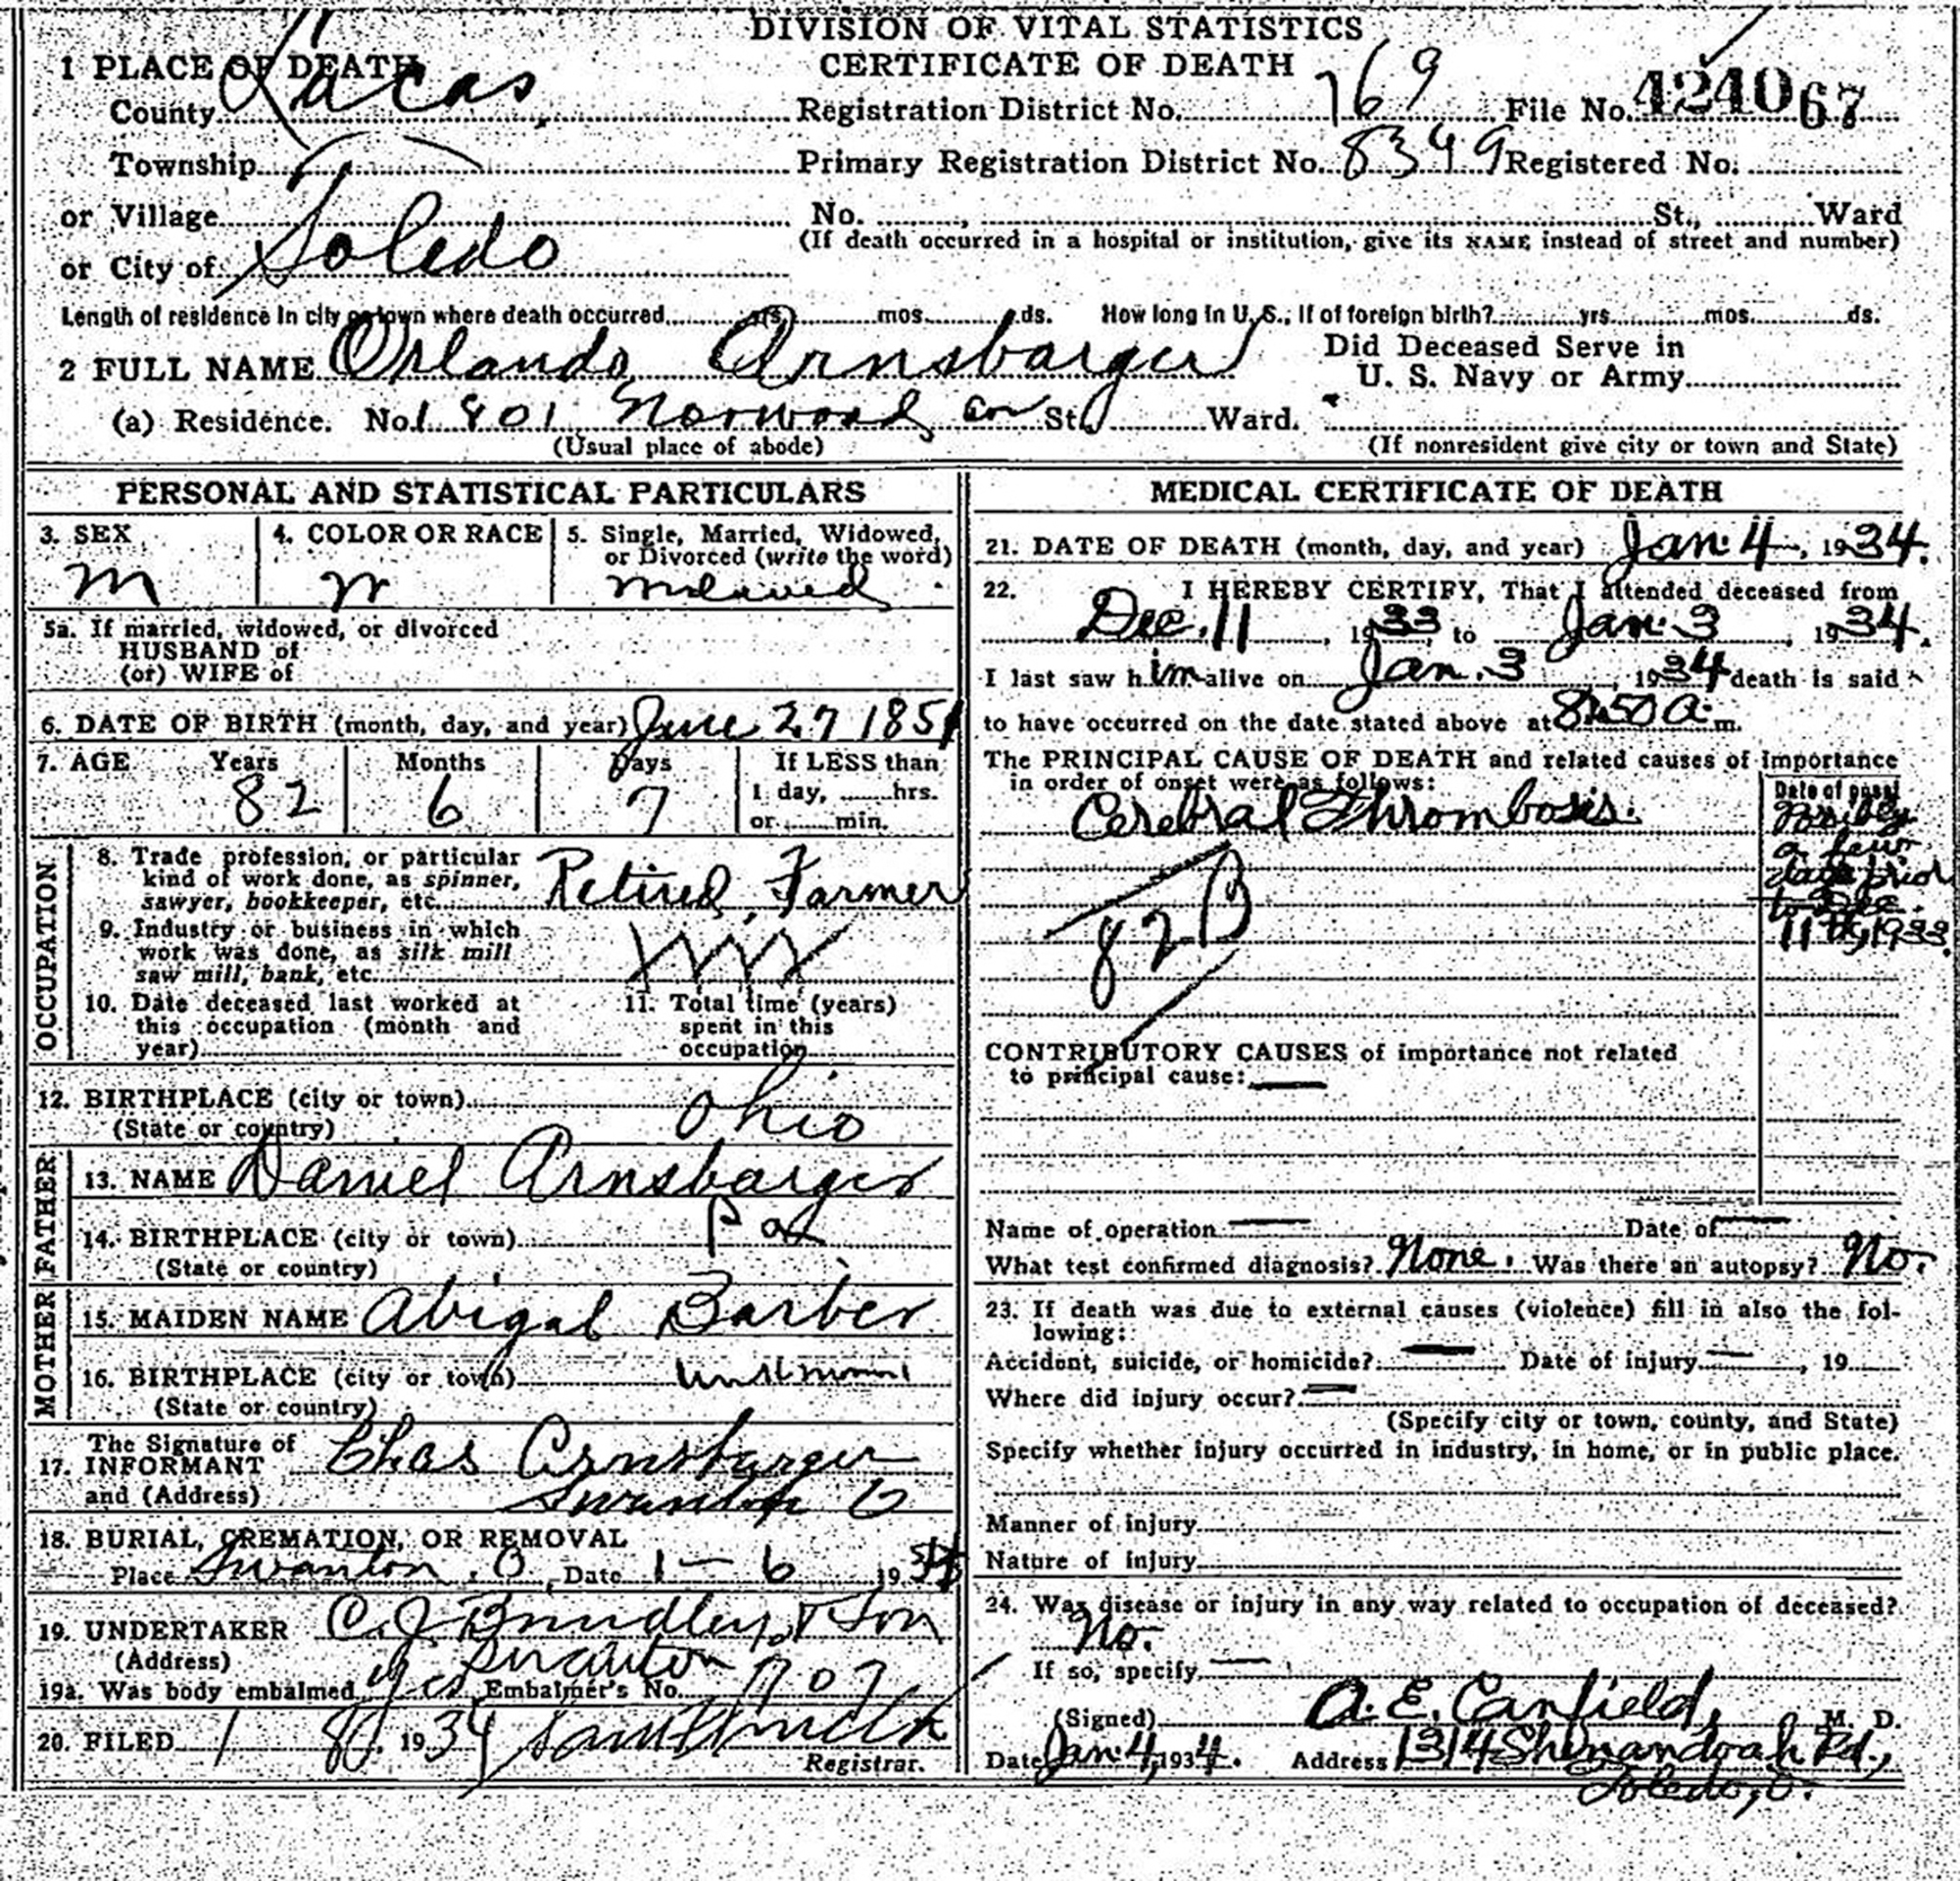 DIVISION OF VITAL STATISTICS
CERTIFICATE OF DEATH
1 PLACE OF DEATH
County Lucas Registration District No. 769 File No. 4240 67
Township Primary Registration District No. 8349 Registered No.
or Village No. , St., Ward
(If death occurred in a hospital or institution, give its NAME instead of street and number)
or City of Toledo
Length of residence in city or town where death occurred yrs. mos. ds. How long in U. S., if of foreign birth? yrs. mos. ds.
2 FULL NAME Orlando Arnsbarger Did Deceased Serve in
U. S. Navy or Army
(a) Residence. No. 1801 Norwood St. Ward.
(Usual place of abode) (If nonresident give city or town and State)
PERSONAL AND STATISTICAL PARTICULARS
3. SEX 4. COLOR OR RACE 5. Single, Married, Widowed,
or Divorced (write the word)
M W
5a. If married, widowed, or divorced
HUSBAND of
(or) WIFE of
6. DATE OF BIRTH (month, day, and year) June 27 1851
7. AGE Years Months Days If LESS than
82 6 7 1 day, hrs.
or min.
OCCUPATION
8. Trade, profession, or particular
kind of work done, as spinner,
sawyer, bookkeeper, etc. Retired, Farmer
9. Industry or business in which
work was done, as silk mill
saw mill, bank, etc.
10. Date deceased last worked at
this occupation (month and
year)
11. Total time (years)
spent in this
occupation
12. BIRTHPLACE (city or town) Ohio
(State or country)
FATHER
13. NAME Daniel Arnsbarger
14. BIRTHPLACE (city or town)
(State or country)
MOTHER
15. MAIDEN NAME Abigal Barber
16. BIRTHPLACE (city or town) unknown
(State or country)
17. The Signature of
INFORMANT Chas Arnsbarger
and (Address) Swanton O
18. BURIAL, CREMATION, OR REMOVAL
Place Swanton, O Date 1-6 1934
19. UNDERTAKER C. J. & Son
(Address) Swanton
19a. Was body embalmed yes Embalmer's No.
20. FILED 1 8, 1934
Registrar.
MEDICAL CERTIFICATE OF DEATH
21. DATE OF DEATH (month, day, and year) Jan. 4, 1934.
22. I HEREBY CERTIFY, That I attended deceased from
Dec. 11, 1933 to Jan. 3, 1934.
I last saw him alive on Jan. 3, 1934 death is said
to have occurred on the date stated above at 8:50 a. m.
The PRINCIPAL CAUSE OF DEATH and related causes of importance
in order of onset were as follows:
Date of onset
Cerebral Thrombosis.
Possibly
a few
days prior
to Dec.
11th, 1933.
82 B
CONTRIBUTORY CAUSES of importance not related
to principal cause: —
Name of operation — Date of —
What test confirmed diagnosis? None. Was there an autopsy? No.
23. If death was due to external causes (violence) fill in also the fol-
lowing:
Accident, suicide, or homicide? — Date of injury —, 19
Where did injury occur? —
(Specify city or town, county, and State)
Specify whether injury occurred in industry, in home, or in public place.
Manner of injury
Nature of injury
24. Was disease or injury in any way related to occupation of deceased?
No.
If so, specify —
(Signed) A. E. Canfield, M. D.
Date Jan. 4, 1934. Address 1314 Shenandoah Rd.,
Toledo, O.